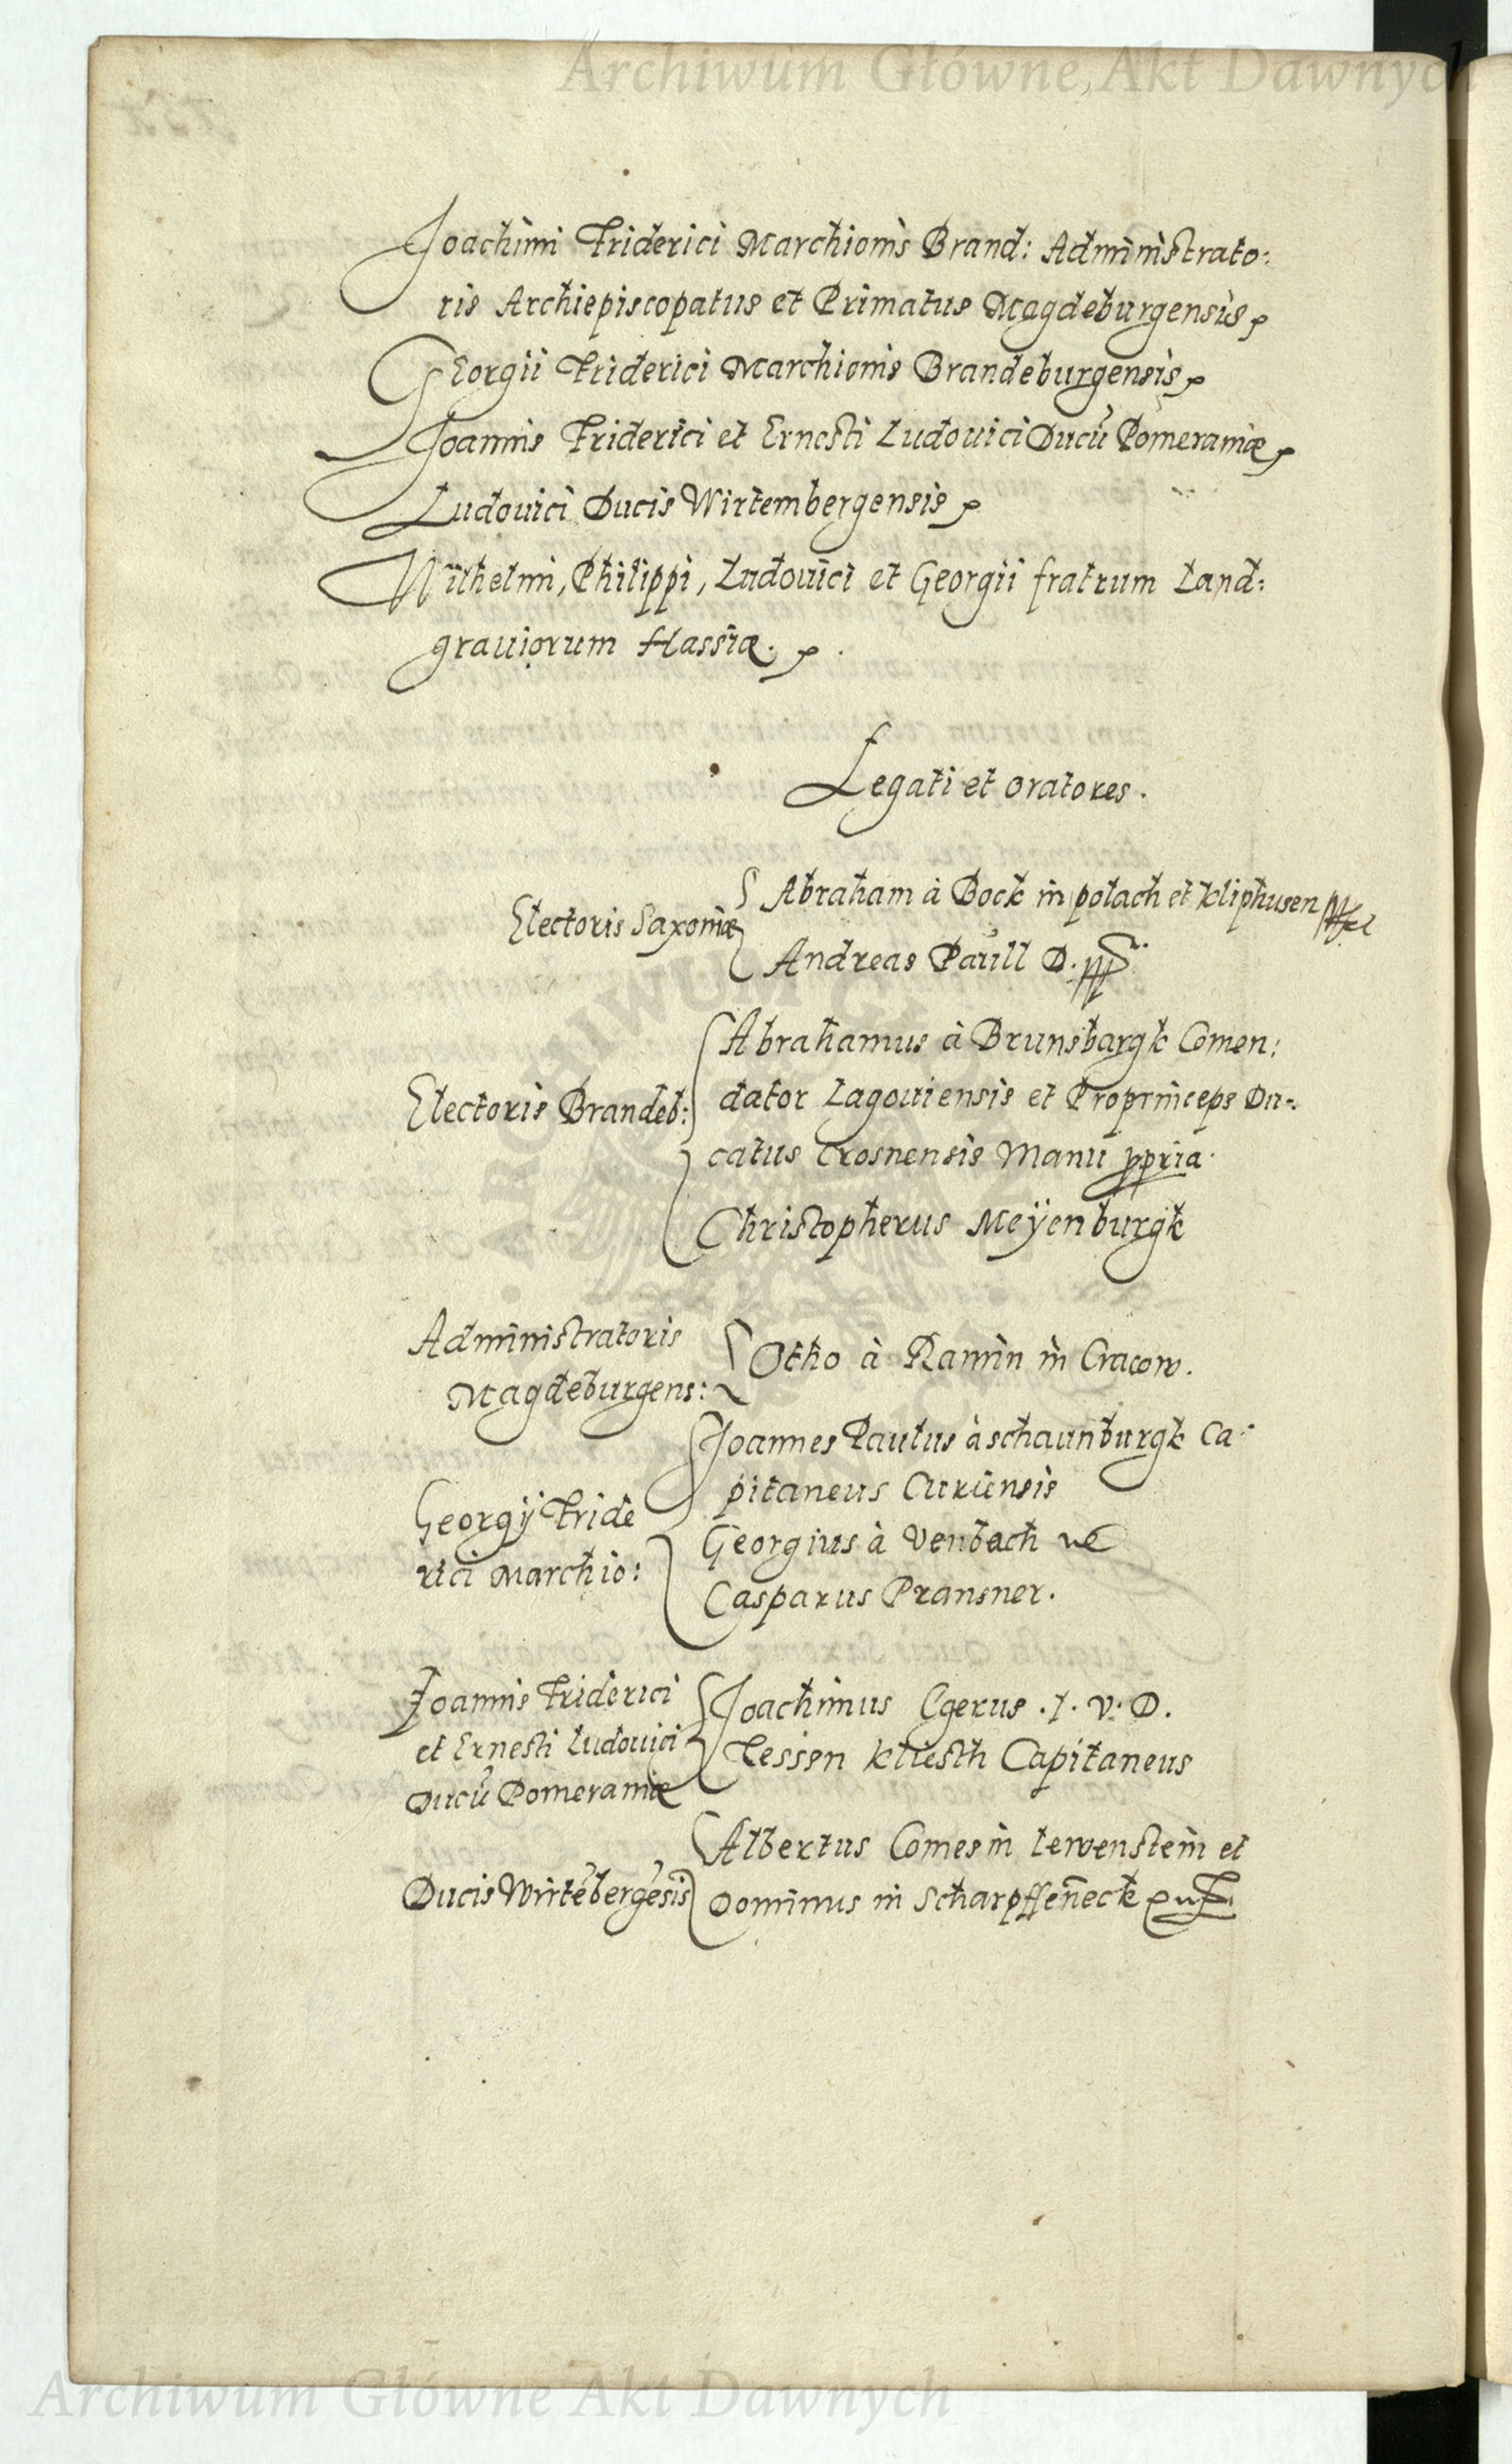 Archiwum Główne Akt Dawnych
Joachimi Friderici Marchionis Brand: Administrato:
ris Archiepiscopatus et Primatus Magdeburgensis
GEorgii Friderici Marchionis Brandeburgensis
Joannis Friderici et Ernesti Ludouici Ducũ Pomeraniæ
Ludouici Ducis Wirtembergensis
Wilhelmi, Philippi, Ludouici et Georgii fratrum Land:
grauiorum Hassiæ.
Legati et oratores.
Electoris Saxoniæ
Abraham à Bock in polach et kliphusen
Andreas Paull D.
Electoris Brandeb:
Abrahamus à Brunsbargk Comen:
dator Lagouiensis et Proprinceps Du-
catus Crosnensis Manu ppria
Christopherus Meÿenburgk
Administratoris
Magdeburgens:
Otho à Ramin in Cracow.
Georgij Fride
rici Marchio:
Joannes Paulus à schaunburgk Ca
pitaneus Curiensis
Georgius à Venbach
Casparus Pransner.
Joannis Friderici
et Ernesti Ludouici
Ducũ Pomeraniæ
Joachimus Cgerus .I. V. D.
Tessen kliesth Capitaneus
Ducis Wirtẽbergẽsis
Albertus Comes in Lewenstein et
Dominus in Scharpffeñeck
Archiwum Główne Akt Dawnych